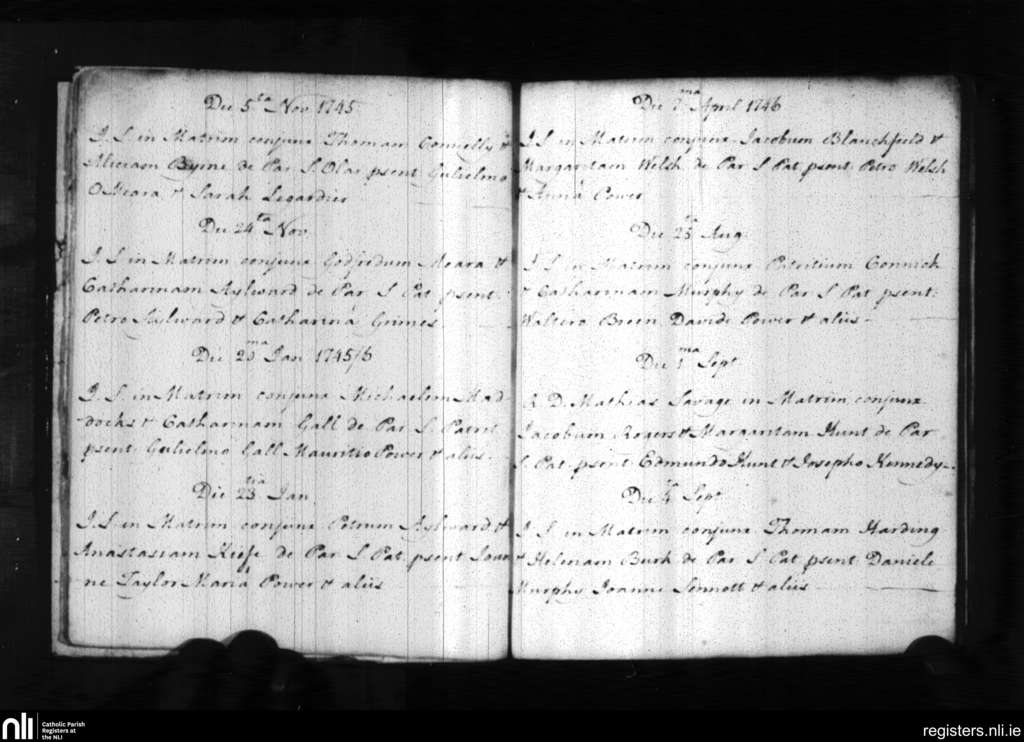 Die 5ta Nov 1745
J. S. in Matrim conjunx Thomam Connelly &
Aliciam Byrne de Par S. Olav psent Gulielmo
OMeara & Sarah Legardier
Die 24ta Nov
J S in Matrim conjunx Godfridum Meara &
Catharinam Aylward de Par S Pat psent.
Petro Aylward & Catharina Grimes
Die 20ma Jan 1745/6
J. S. in Matrim conjunx Michaelem Mad-
docks & Catharinam Gall de Par S. Patrit
psent Gulielmo Gall Mauritio Power & aliis.
Die 23tia Jan
J. S. in Matrim conjunx Petrum Aylward &
Anastasiam Keefe de Par S Pat psent Joan
ne Taylor Maria Power & aliis
Die 7ma April 1746
J S in Matrim conjunx Jacobum Blanchfield &
Margaritam Welsh de Par S Pat psent Petro Welsh
& Anna Power
Die 25ta Aug.
J S in Matrim conjunx Patritium Connick
& Catharinam Murphy de Par S Pat psent:
Waltero Breen Davide Power & aliis -
Die 1ma Sept
R D. Mathias Savage in Matrim conjunx
Jacobum Rogers & Margaritam Hunt de Par
S. Pat psent Edmundo Hunt & Josepho Kennedy
Die 4ta Sept
J S in Matrim conjunx Thomam Harding
& Helenam Burk de Par S Pat psent Daniele
Murphy Joanne Sennott & aliis
nli
Catholic Parish
Registers at
the NLI
registers.nli.ie